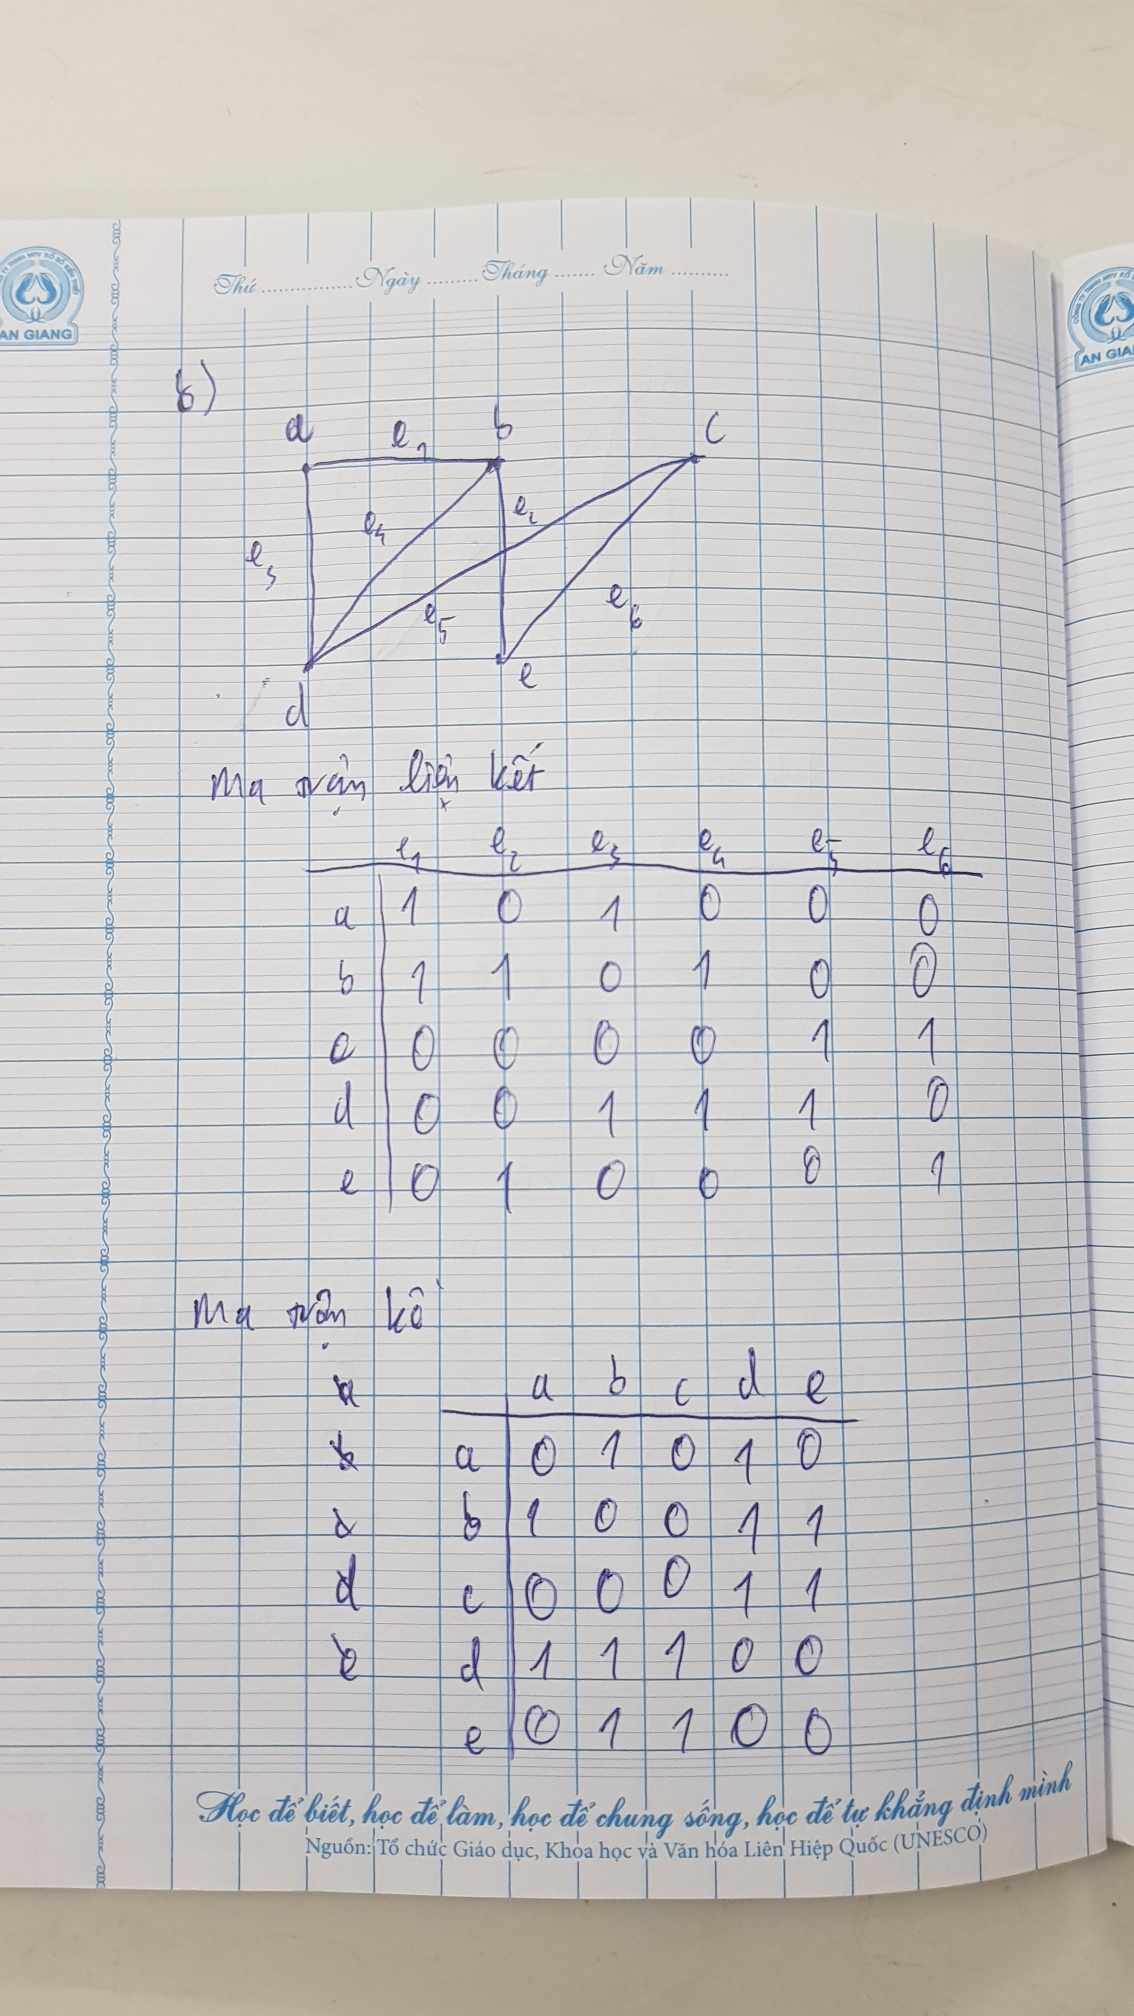 Thứ ................ Ngày ......... Tháng ....... Năm ..........
AN GIANG
AN GIA
b)
a e1 b c
e3 e4 e2
e5 e6
d e
Ma trận liên kết
e1 e2 e3 e4 e5 e6
a 1 0 1 0 0 0
b 1 1 0 1 0 0
c 0 0 0 0 1 1
d 0 0 1 1 1 0
e 0 1 0 0 0 1
Ma trận kề
a b c d e
a 0 1 0 1 0
b 1 0 0 1 1
c 0 0 0 1 1
d 1 1 1 0 0
e 0 1 1 0 0
Học để biết, học để làm, học để chung sống, học để tự khẳng định mình
Nguồn: Tổ chức Giáo dục, Khoa học và Văn hóa Liên Hiệp Quốc (UNESCO)